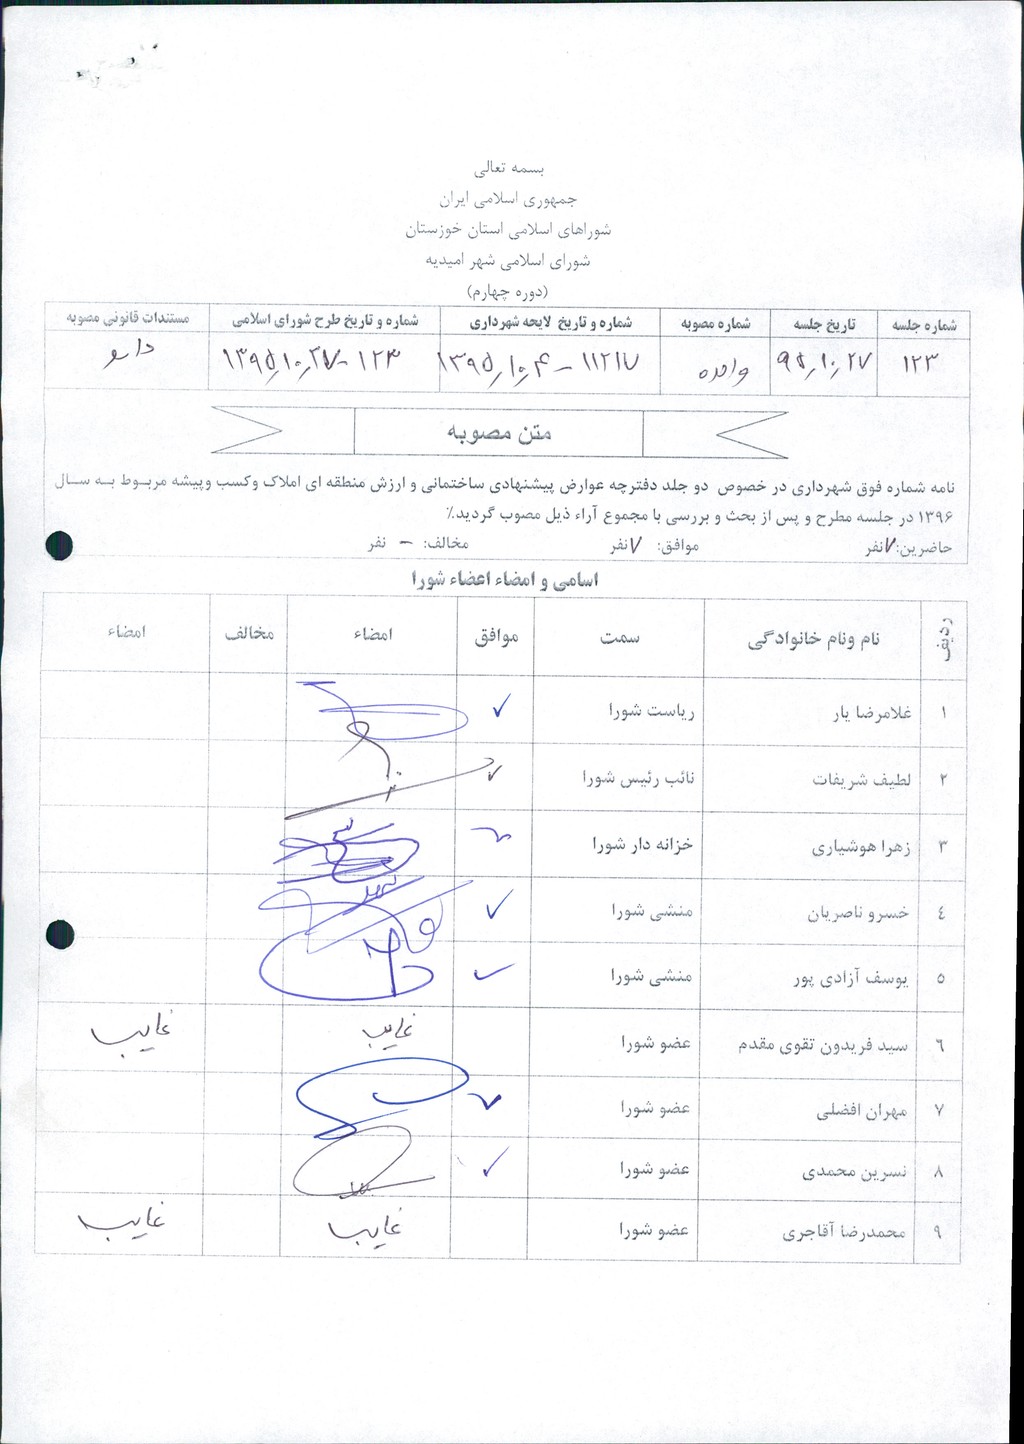 بسمه تعالی
جمهوری اسلامی ایران
شوراهای اسلامی استان خوزستان
شورای اسلامی شهر امیدیه
(دوره چهارم)
شماره جلسه تاریخ جلسه شماره مصوبه شماره و تاریخ لایحه شهرداری شماره و تاریخ طرح شورای اسلامی مستندات قانونی مصوبه
۱۲۳ ۹۵/۱۰/۲۷ واحده ۱۱۲۱۷ - ۱۳۹۵/۱۰/۴ ۱۲۳ - ۱۳۹۵/۱۰/۲۷
متن مصوبه
نامه شماره فوق شهرداری در خصوص دو جلد دفترچه عوارض پیشنهادی ساختمانی و ارزش منطقه ای املاک وکسب وپیشه مربوط به سال
۱۳۹۶ در جلسه مطرح و پس از بحث و بررسی با مجموع آراء ذیل مصوب گردید٪
حاضرین: ۷ نفر موافق: ۷ نفر مخالف: - نفر
اسامی و امضاء اعضاء شورا
ردیف نام ونام خانوادگی سمت موافق امضاء مخالف امضاء
۱ غلامرضا یار ریاست شورا ✓
۲ لطیف شریفات نائب رئیس شورا ✓
۳ زهرا هوشیاری خزانه دار شورا ✓
٤ خسرو ناصریان منشی شورا ✓
٥ یوسف آزادی پور منشی شورا ✓
٦ سید فریدون تقوی مقدم عضو شورا غایب غایب
۷ مهران افضلی عضو شورا ✓
۸ نسرین محمدی عضو شورا ✓
۹ محمدرضا آقاجری عضو شورا غایب غایب